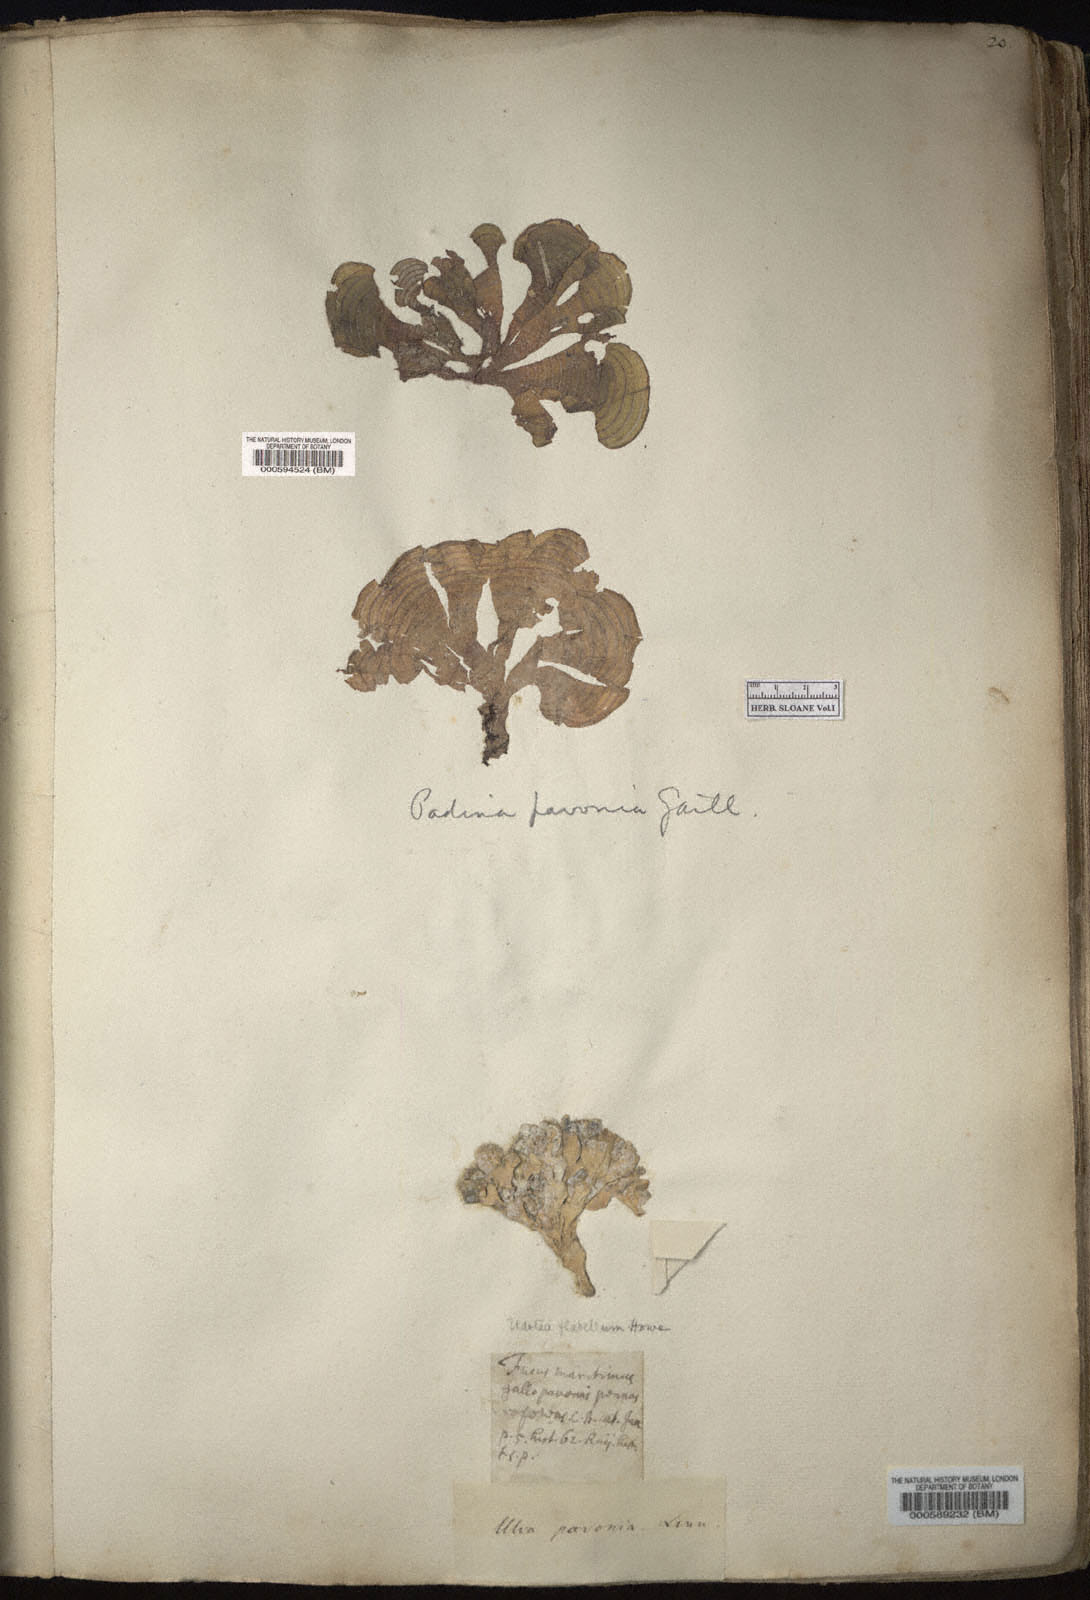 20
THE NATURAL HISTORY MUSEUM, LONDON
DEPARTMENT OF BOTANY
000594524 (BM)
1 2 3
HERB. SLOANE Vol.1
Padina pavonia Gaill.
Udotea flabellum Howe
Fucus maritimus
gallopavonis pennas
referens C.B. cat. Jam
p. 5. Hist. 62. Raij. hist.
p.
Ulva pavonia. Linn.
THE NATURAL HISTORY MUSEUM, LONDON
DEPARTMENT OF BOTANY
000589232 (BM)